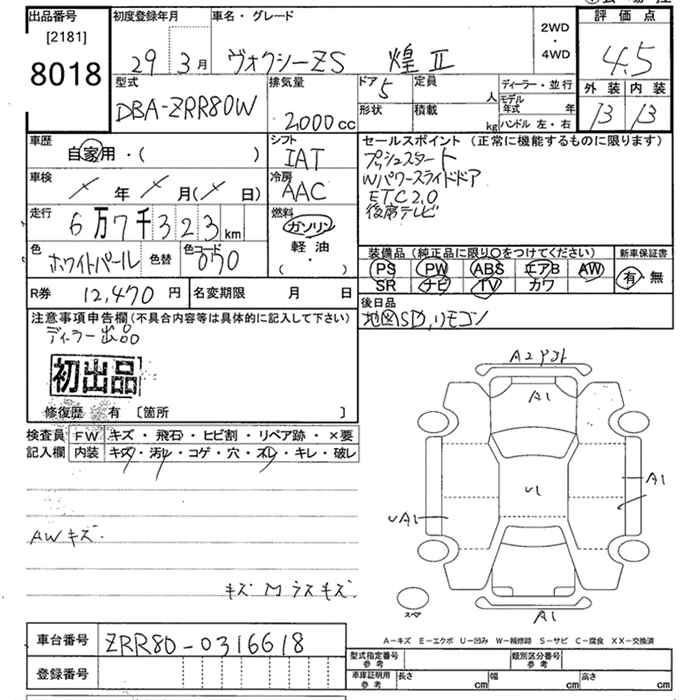 出品番号 初度登録年月 車名・グレード 評価点
[2181]
8018
29 3月 ヴォクシーZS 煌Ⅱ
2WD
・
4WD
4.5
型式 排気量 ドア 定員 ディーラー・並行 外装 内装
DBA-ZRR80W 2,000cc 5 人 モデル年式 年
形状 積載 kg ハンドル 左・右
車歴 シフト セールスポイント (正常に機能するものに限ります)
自家用・( ) IAT
プッシュスタート
Wパワースライドドア
ETC2.0
後席テレビ
車検 年 月( 日) 冷房 AAC
走行 6万7千323km 燃料 ガソリン
軽油
( ・ )
色 ホワイトパール 色替 色コード 070
装備品 (純正品に限り○をつけてください) 新車保証書
PS PW ABS エアB AW 有・無
SR ナビ TV カワ
R券 12,470円 名変期限 月 日
後日品
地図SD,リモコン
注意事項申告欄(不具合内容等は具体的に記入して下さい)
ディーラー出品
初出品
修復歴 有 [箇所 ]
検査員 FW キズ・飛石・ヒビ割・リペア跡・×要
記入欄 内装 キズ・汚レ・コゲ・穴・スレ・キレ・破レ
A1
U1
A1
UA1
AWキズ.
A1
スペア
A-キズ E-エクボ U-凹み W-補修跡 S-サビ C-腐食 XX-交換済
車台番号 ZRR80-0316618
登録番号
型式指定番号 参考 類別区分番号 参考
車庫証明用 参考 長さ cm 幅 cm 高さ cm